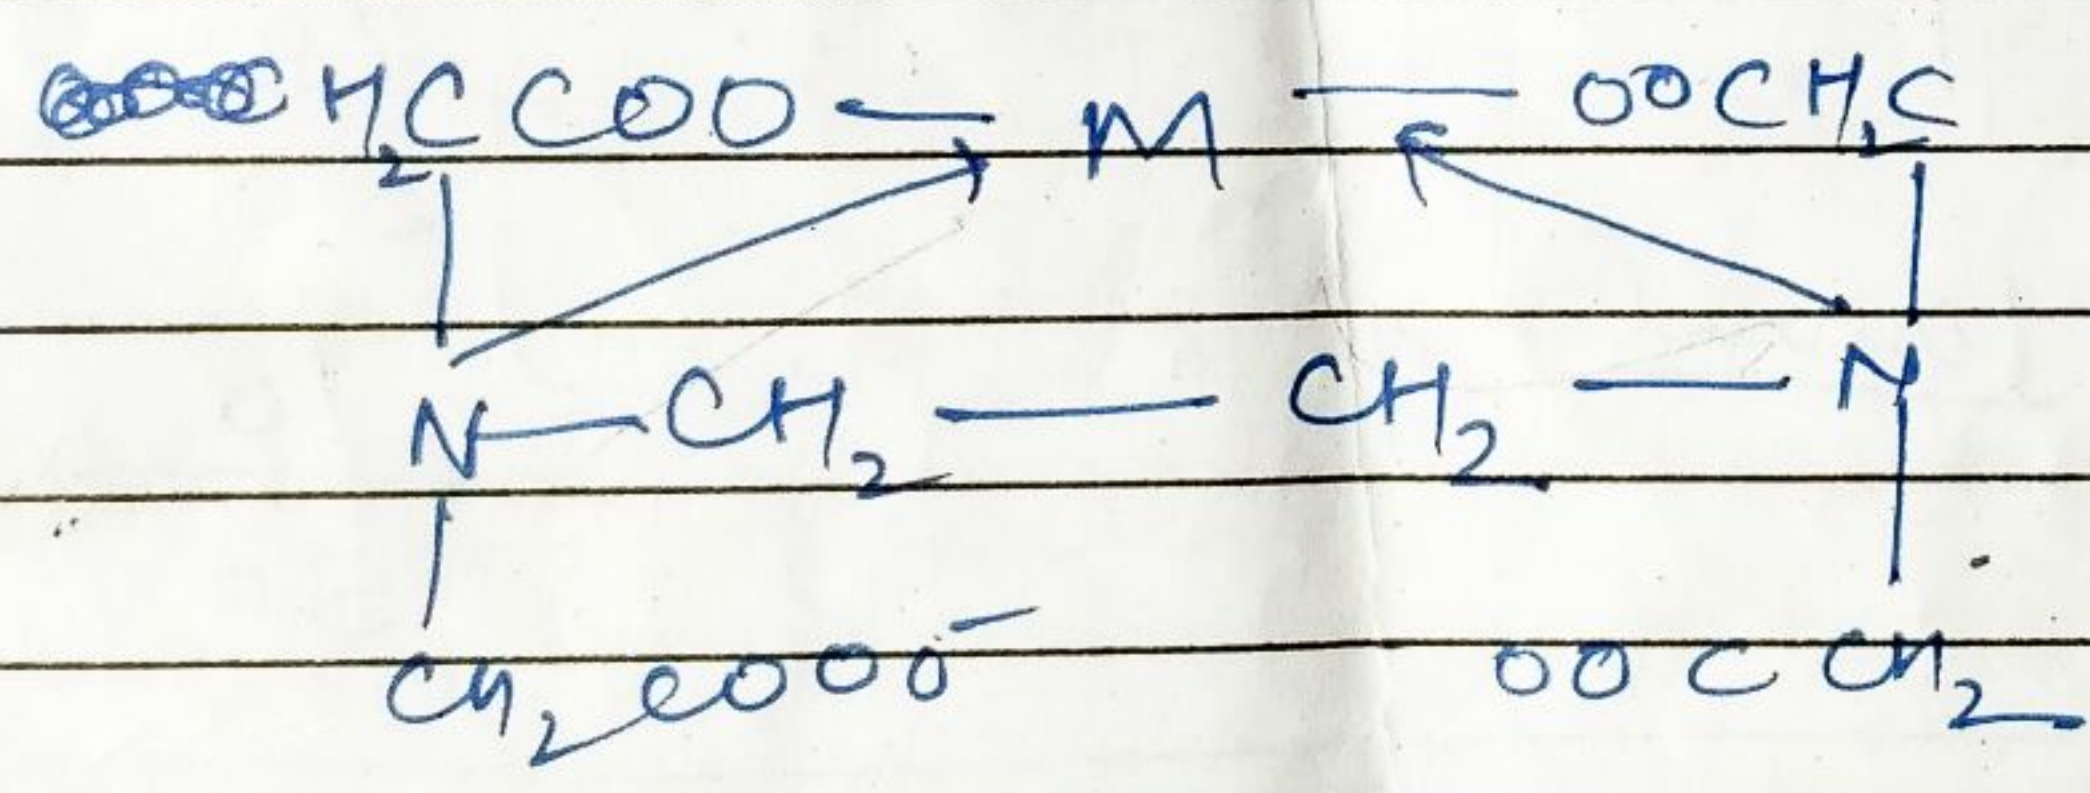 H₂CCOO — M — OOCH₂C
N — CH₂ — CH₂ — N
CH₂COOO⁻ OOCCH₂